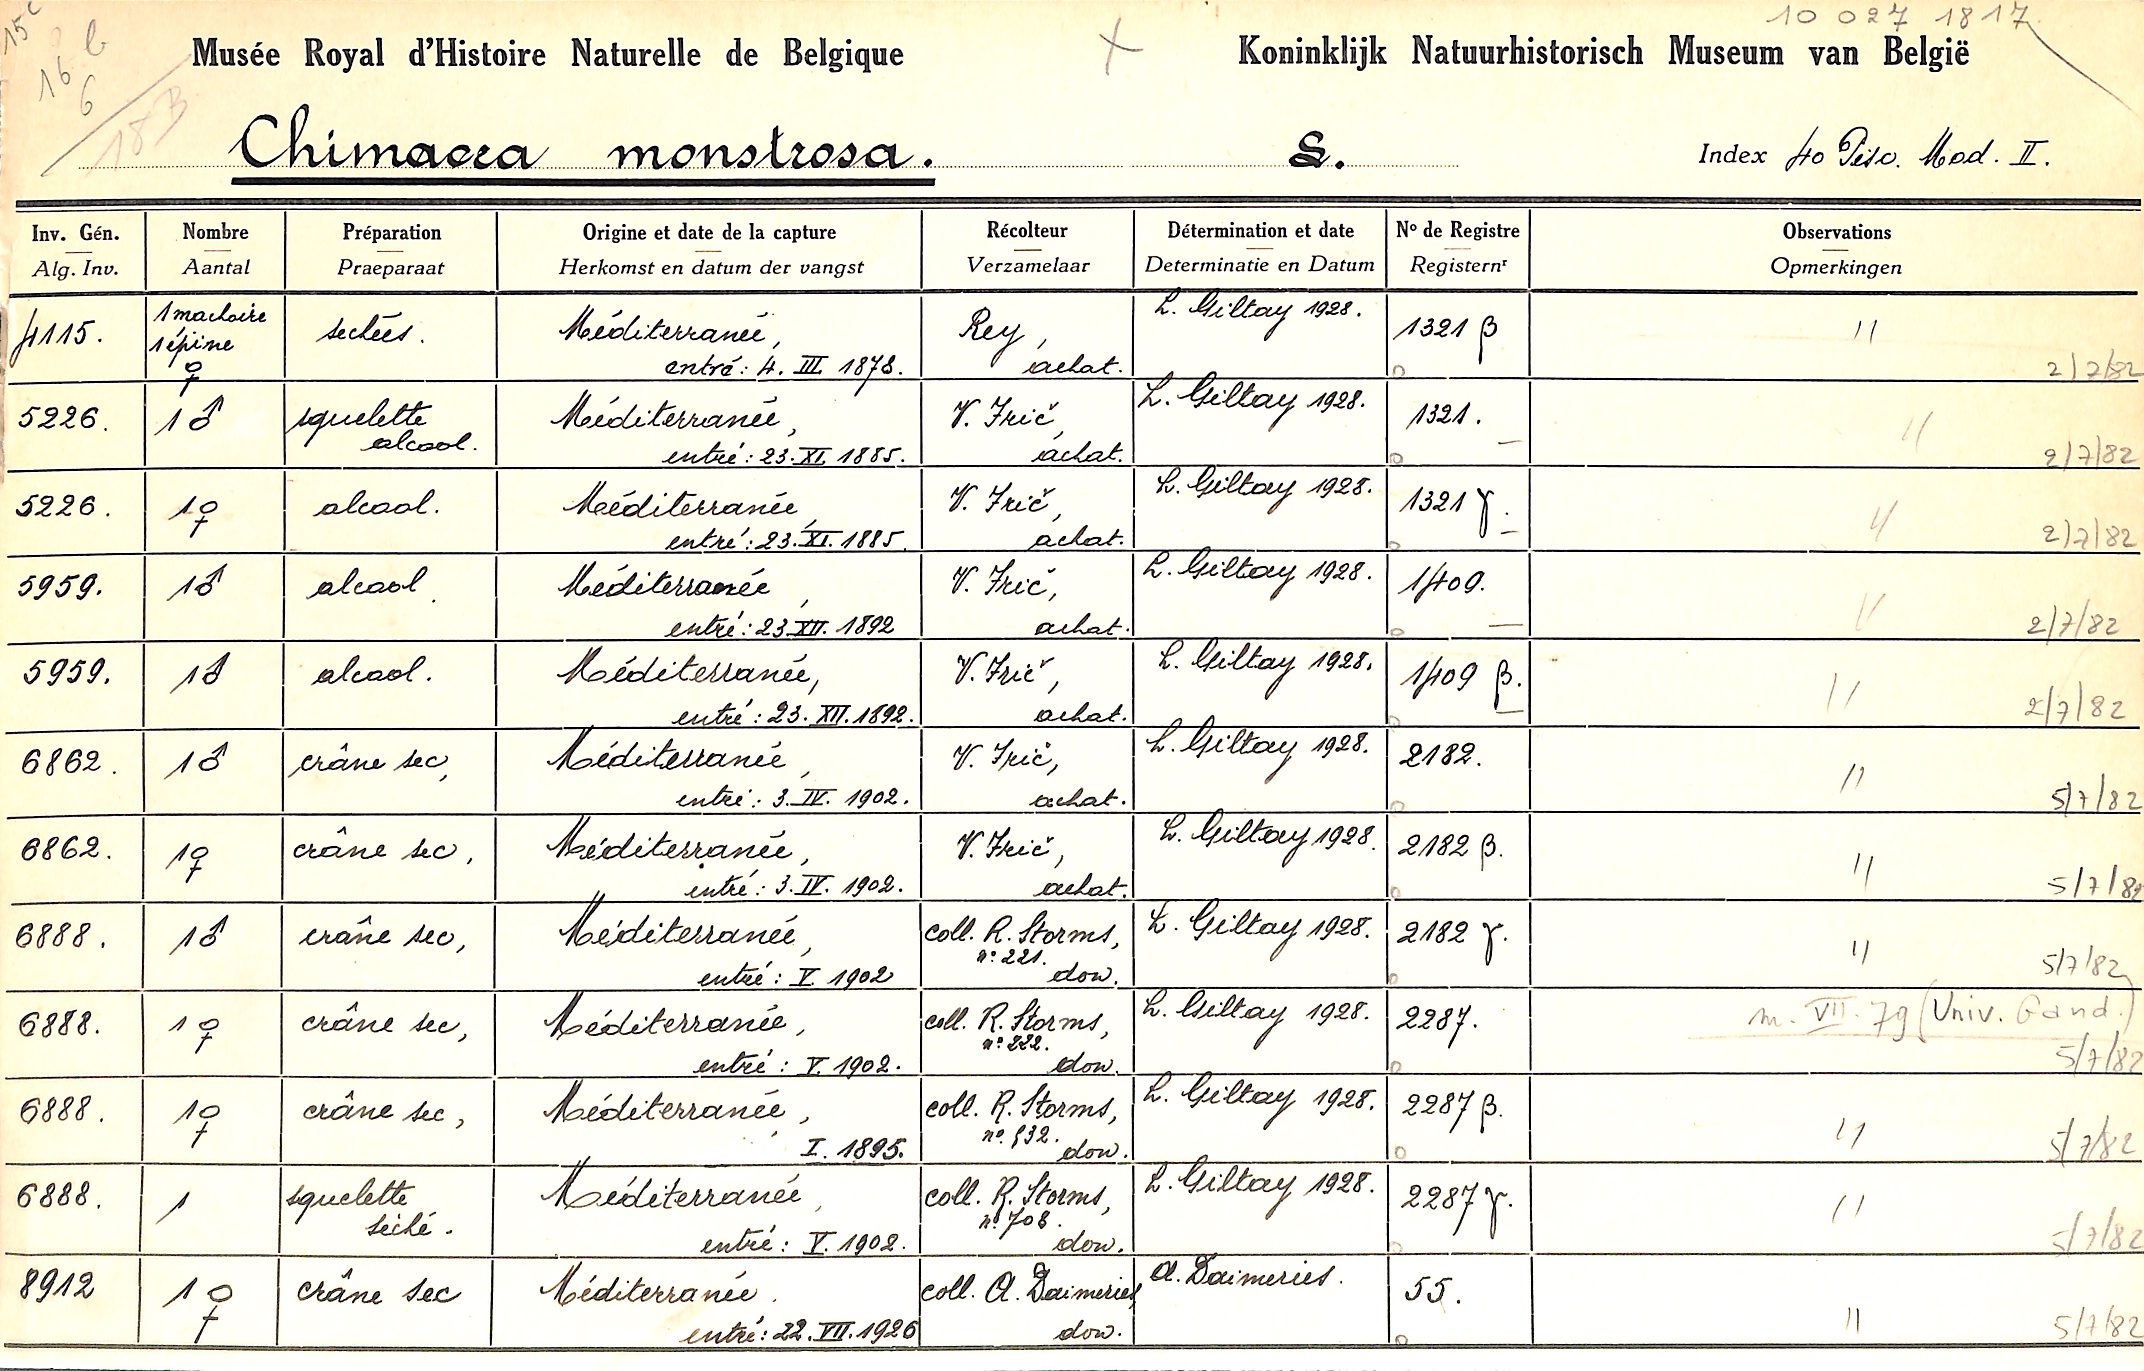 10 027 1817
15c
16 b
6
18B
Musée Royal d'Histoire Naturelle de Belgique
Koninklijk Natuurhistorisch Museum van België
Chimaera monstrosa. L.
Index 40 Pisc. Mod. II.
Inv. Gén. Nombre Préparation Origine et date de la capture Récolteur Détermination et date No de Registre Observations
Alg. Inv. Aantal Praeparaat Herkomst en datum der vangst Verzamelaar Determinatie en Datum Registernr Opmerkingen
4115. 1 machoire 1 épine ♀ sechées. Méditerranée, entré: 4. III. 1878. Rey, achat. L. Giltay 1928. 1321 β " 2/7/82
5226. 1 ♂ squelette alcool. Méditerranée, entré: 23. XI. 1885. V. Frič, achat. L. Giltay 1928. 1321. " 2/7/82
5226. 1 ♀ alcool. Méditerranée, entré: 23. XI. 1885. V. Frič, achat. L. Giltay 1928. 1321 γ. " 2/7/82
5959. 1 ♂ alcool. Méditerranée, entré: 23. XII. 1892 V. Frič, achat. L. Giltay 1928. 1409. " 2/7/82
5959. 1 ♂ alcool. Méditerranée, entré: 23. XII. 1892. V. Frič, achat. L. Giltay 1928. 1409 β. " 2/7/82
6862. 1 ♂ crâne sec, Méditerranée, entré: 3. IV. 1902. V. Frič, achat. L. Giltay 1928. 2182. " 5/7/82
6862. 1 ♀ crâne sec, Méditerranée, entré: 3. IV. 1902. V. Frič, achat. L. Giltay 1928. 2182 β. " 5/7/82
6888. 1 ♂ crâne sec, Méditerranée, entré: V. 1902 coll. R. Storms, n° 221. don. L. Giltay 1928. 2182 γ. " 5/7/82
6888. 1 ♀ crâne sec, Méditerranée, entré: V. 1902. coll. R. Storms, n° 222. don. L. Giltay 1928. 2287. m. VII. 79 (Univ. Gand.) 5/7/82
6888. 1 ♀ crâne sec, Méditerranée, I. 1895. coll. R. Storms, don. L. Giltay 1928. 2287 β. " 5/7/82
6888. 1 squelette séché. Méditerranée, entré: V. 1902. coll. R. Storms, n° 708. don. L. Giltay 1928. 2287 γ. " 5/7/82
8912 1 ♀ crâne sec Méditerranée. entré: 22. VII. 1926 coll. A. Daimeries, don. A. Daimeries. 55. " 5/7/82